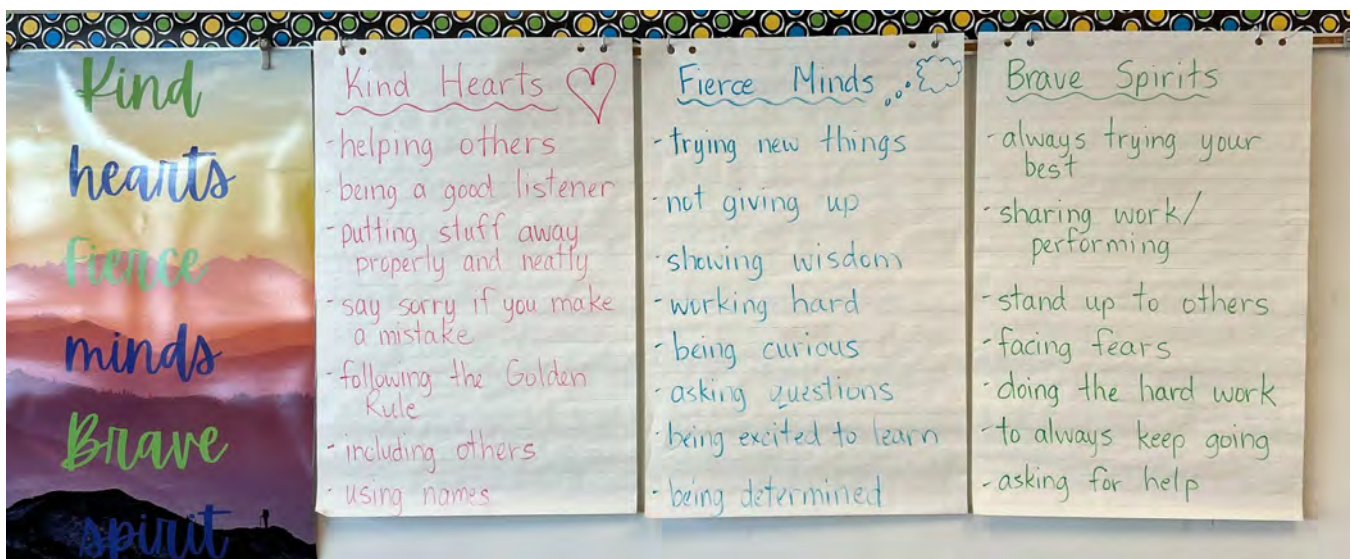 Kind
hearts
Fierce
minds
Brave
spirit
Kind Hearts
- helping others
- being a good listener
- putting stuff away
properly and neatly
- say sorry if you make
a mistake
- following the Golden
Rule
- including others
- using names
Fierce Minds
- trying new things
- not giving up
- showing wisdom
- working hard
- being curious
- asking questions
- being excited to learn
- being determined
Brave Spirits
- always trying your
best
- sharing work/
performing
- stand up to others
- facing fears
- doing the hard work
- to always keep going
- asking for help